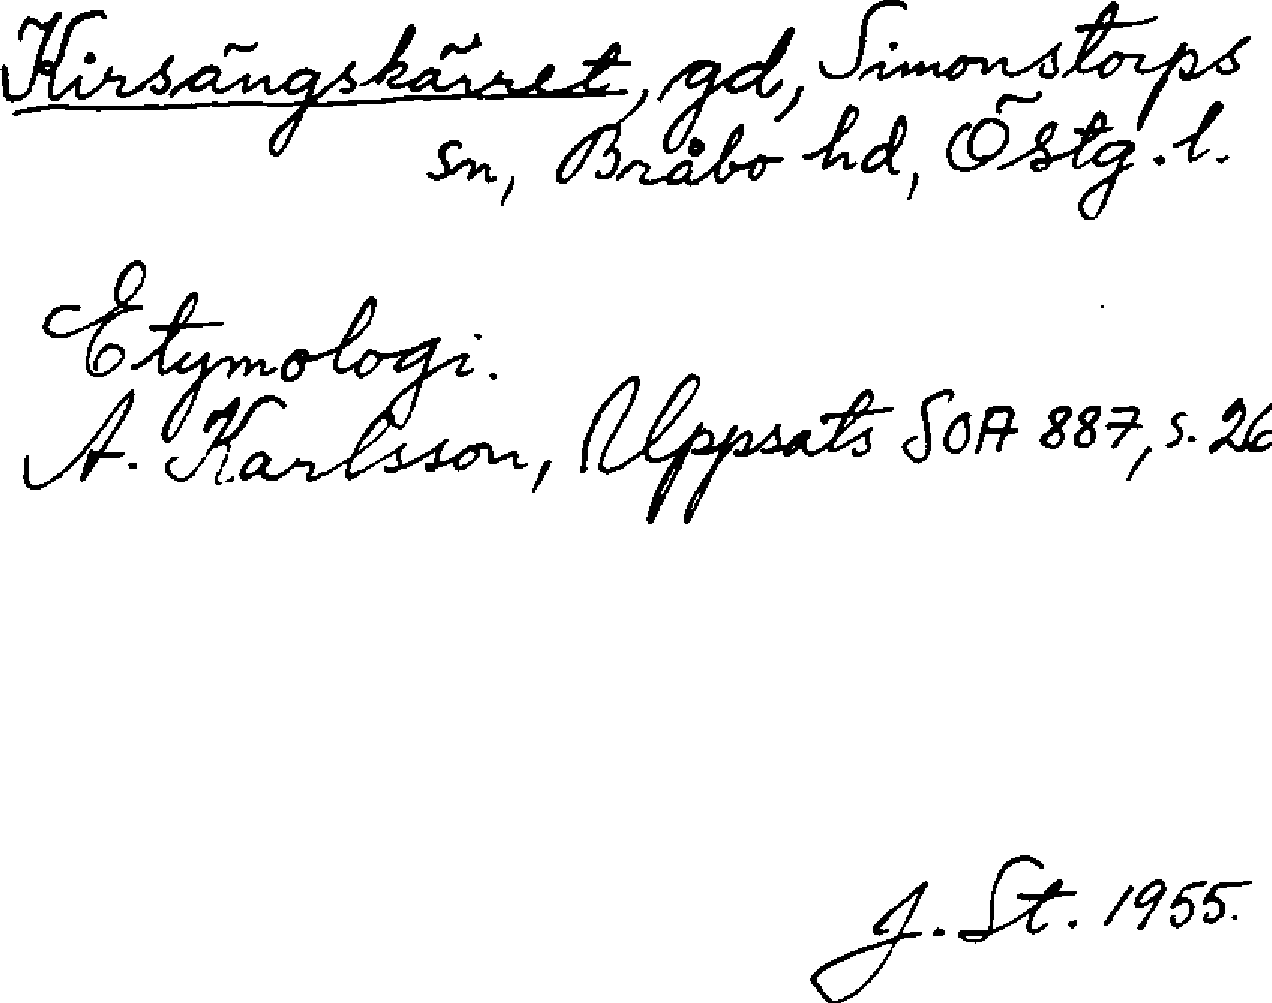 Kirsängskärret, gd, Simonstorps
sn, Bråbo hd, Östg. l.
Etymologi.
A. Karlsson, Uppsats SOA 887, s. 26
J. St. 1955.